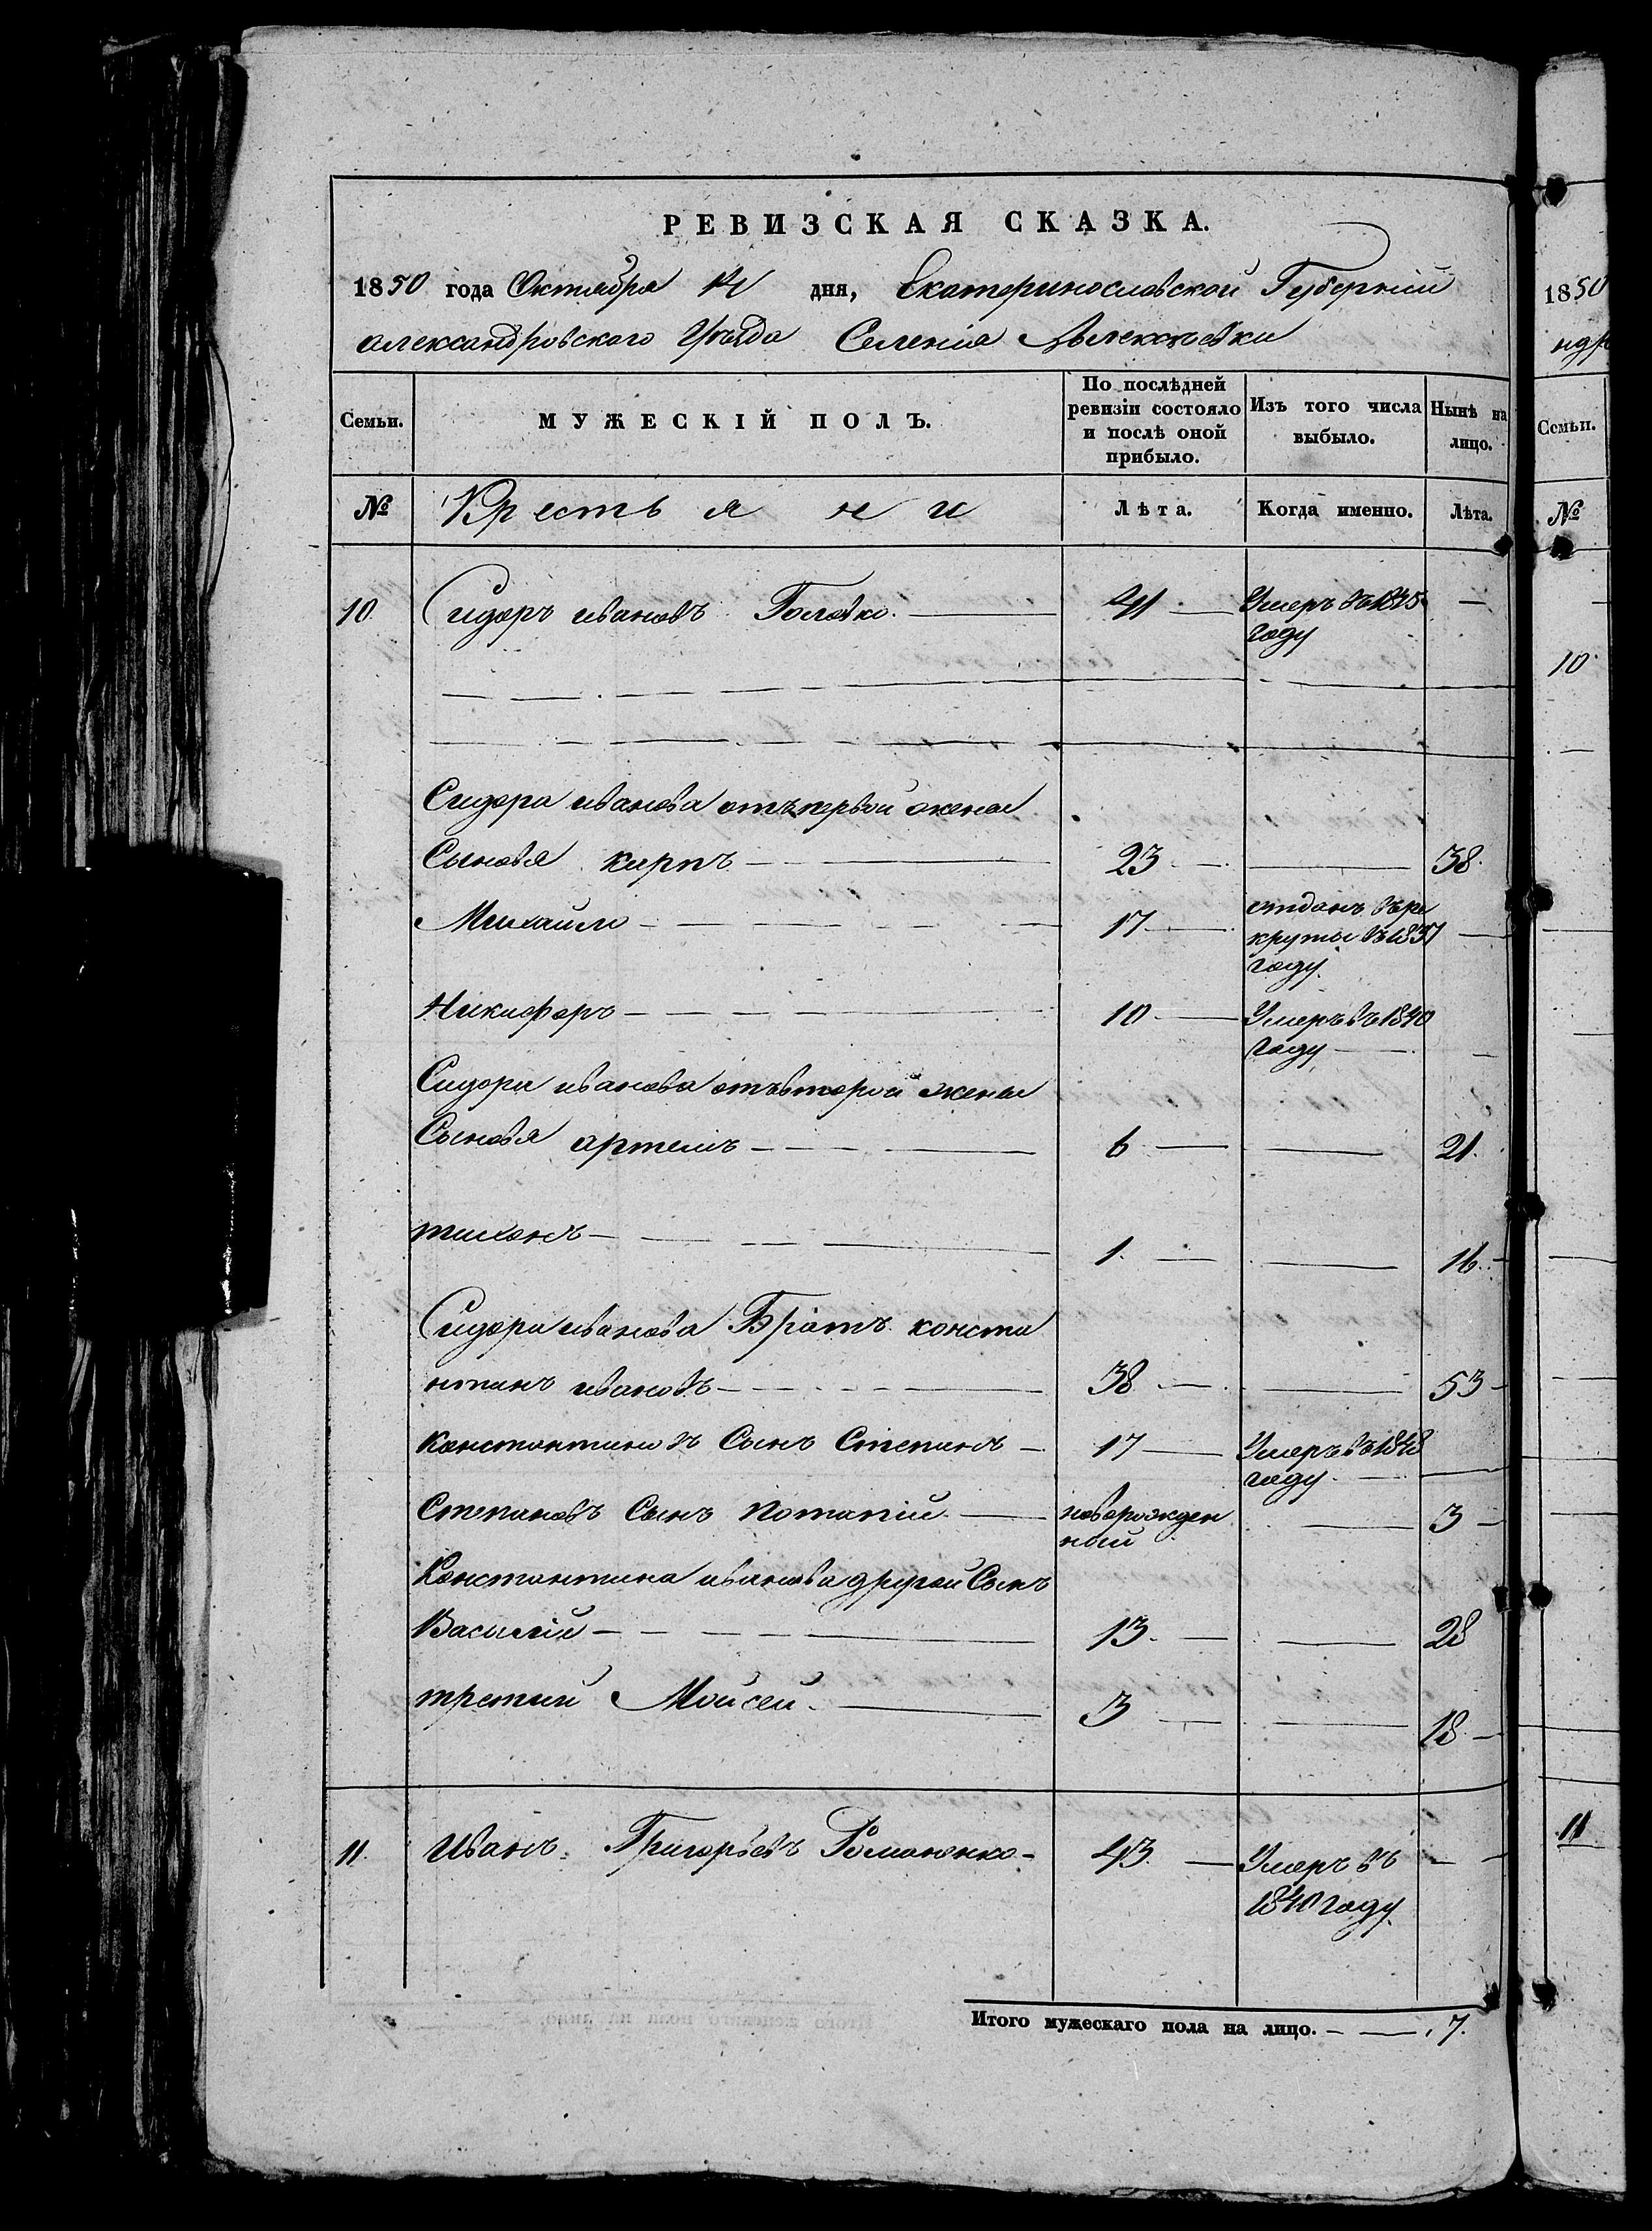 РЕВИЗСКАЯ СКАЗКА.
1850 года Октября 14 дня, Екатеринославской Губернии
александровского Уѣзда Селенія Алексѣевки
Семьи. МУЖЕСКІЙ ПОЛЪ. По послѣдней ревизіи состояло и послѣ оной прибыло. Изъ того числа выбыло. Нынѣ на лицо.
№ Крестьяни Лѣта. Когда именно. Лѣта.
10. Сидоръ ивановъ Головко. — 41 — Умеръ въ 1845 —
году
Сидора иванова отъ первой жены
Сыновя карпъ — 23 — — 38.
Михайло — 17 — отданъ въ ре
круты въ 1837 —
году.
Никифоръ — 10 — Умеръ въ 1840
году — —
Сидора иванова отъ второй жены
Сыновя артемъ — 6 — — 21.
тихонъ — 1. — — 16. —
Сидора иванова Братъ конста
нтинъ ивановъ — 38 — — 53 —
Константиновъ Сынъ Степанъ — 17 — Умеръ въ 1848
году. —
Степановъ Сынъ Потапій — новорожден — 3 —
ный
Константина иванова другой Сынъ
Василій — 13. — — 28
третий Мойсей. — 3 — — 18 —
11. иванъ Григорьевъ Романенко — 43. — Умеръ въ — —
1840 году.
Итого мужескаго пола на лицо. — — 7.
1850
ндр
Семьи.
№
10
11